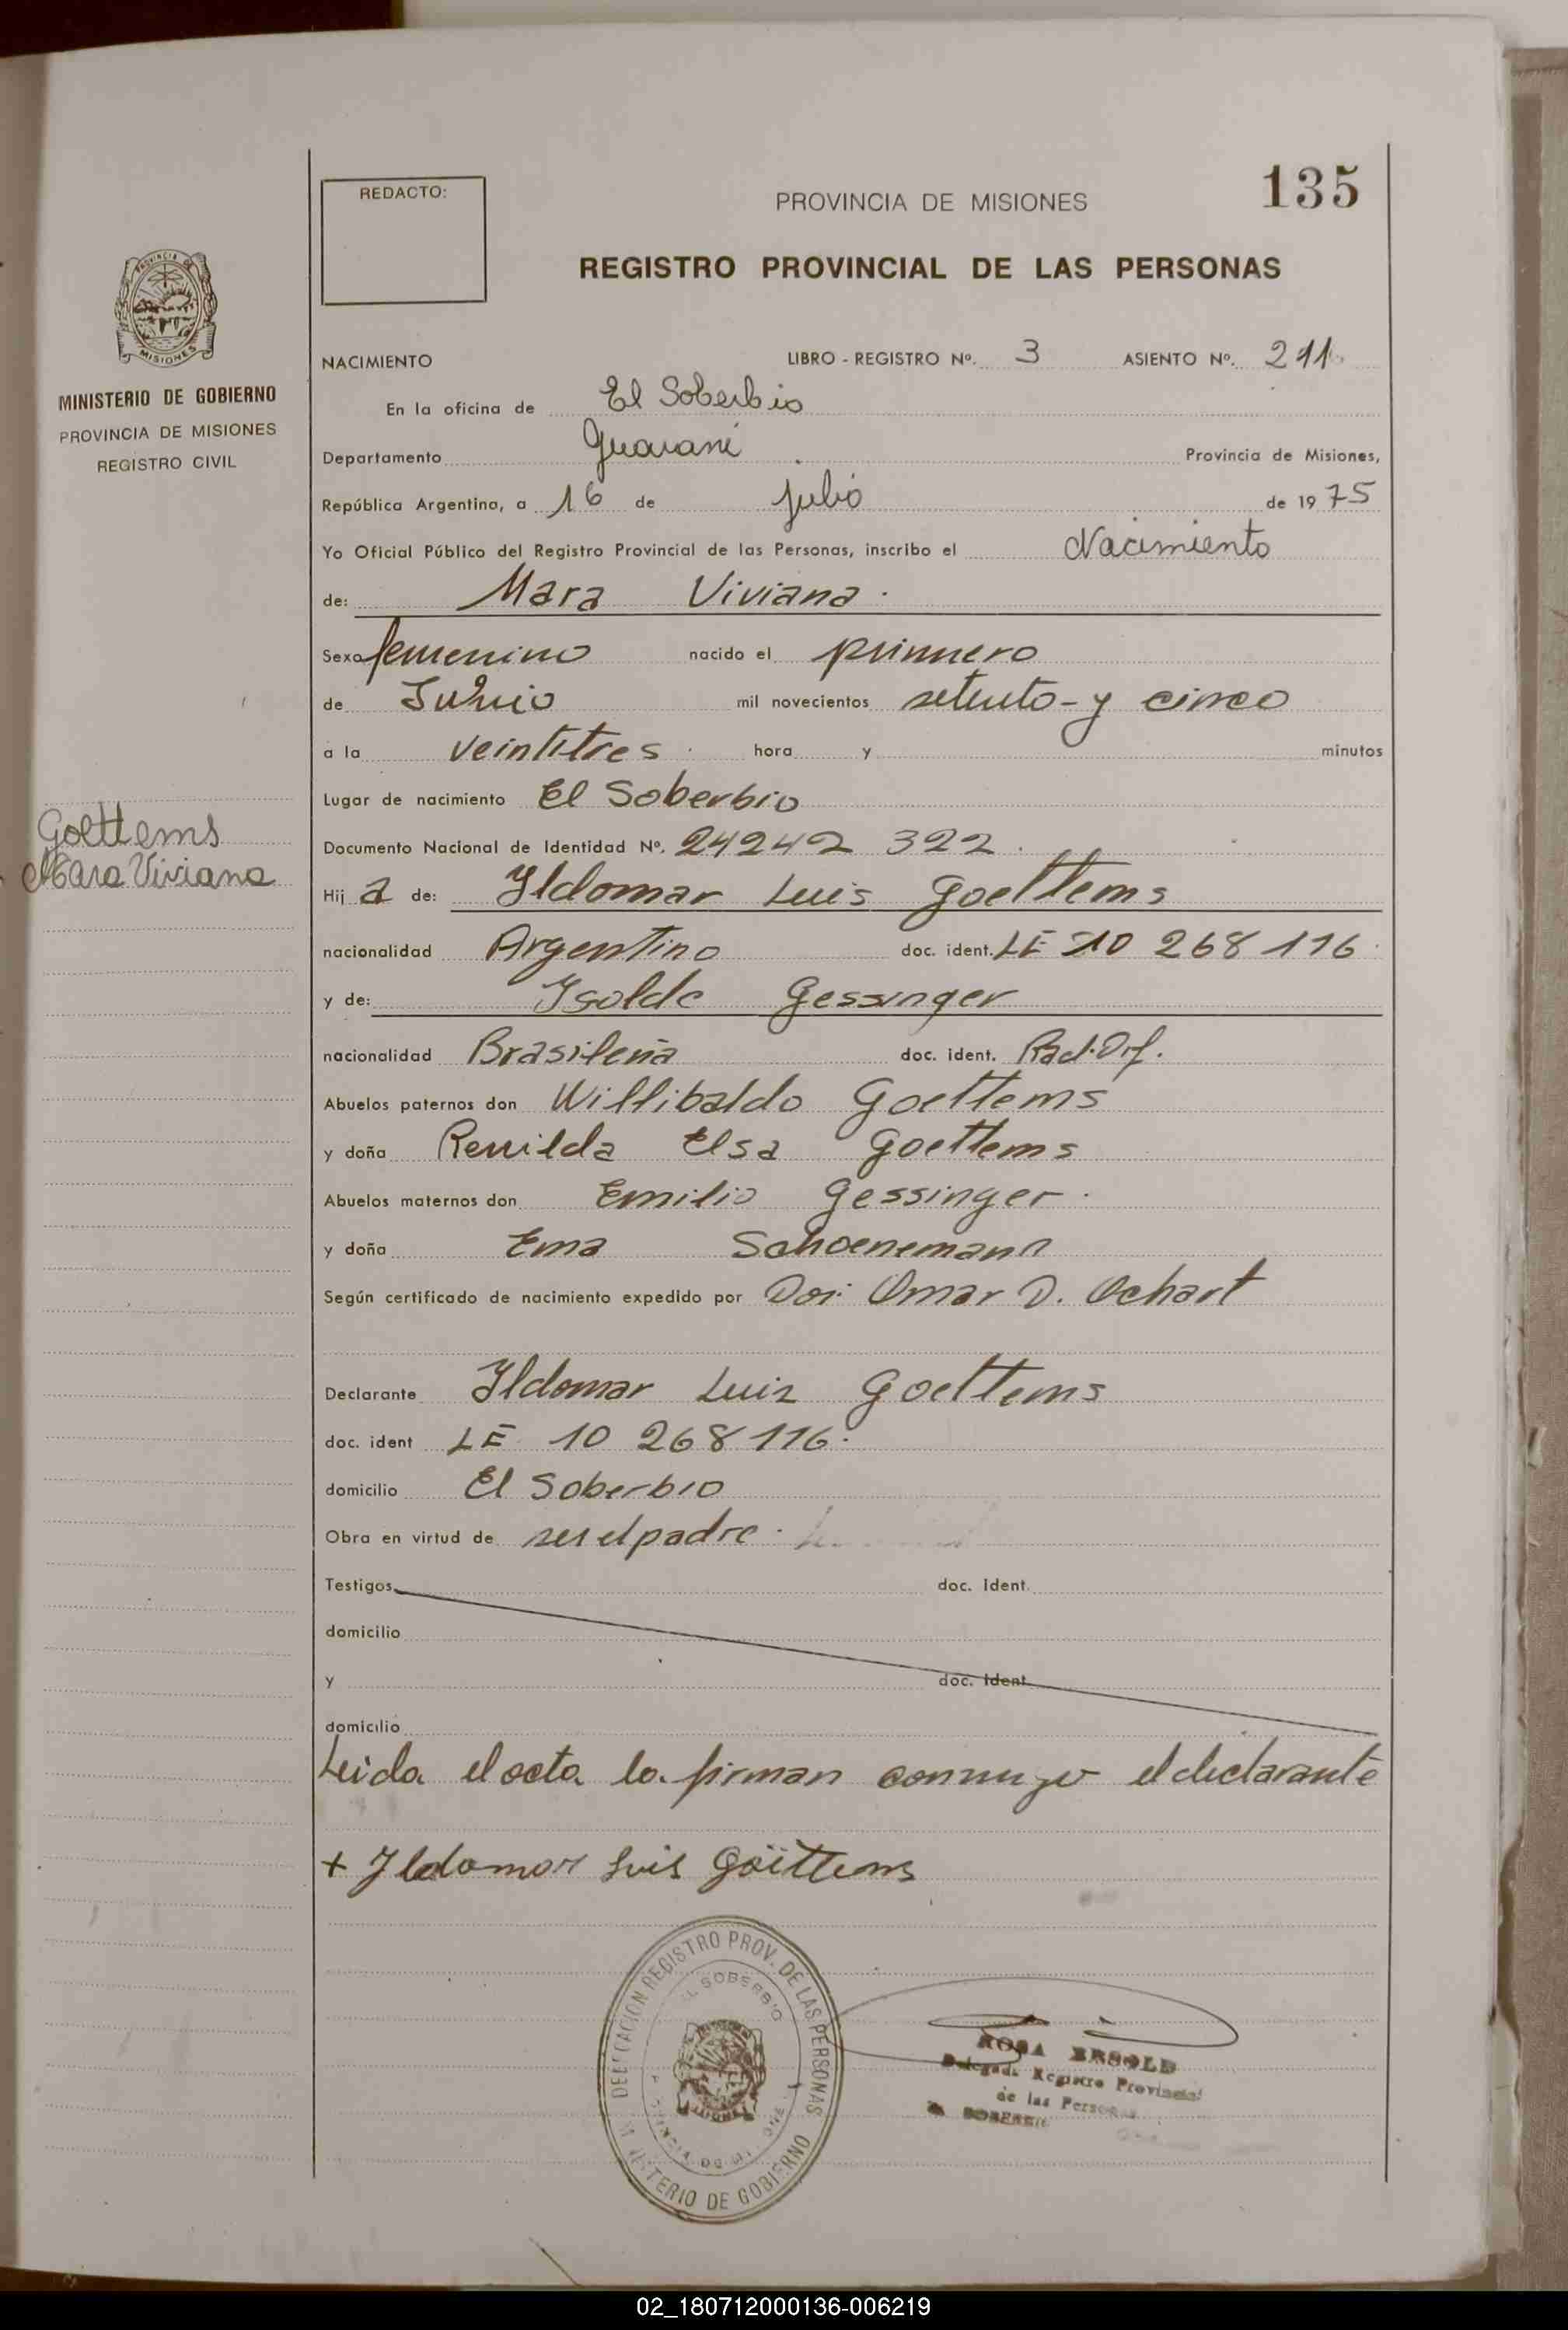 REDACTO:
PROVINCIA DE MISIONES
135
REGISTRO PROVINCIAL DE LAS PERSONAS
PROVINCIA DE
MISIONES
MINISTERIO DE GOBIERNO
PROVINCIA DE MISIONES
REGISTRO CIVIL
NACIMIENTO LIBRO - REGISTRO Nº. 3 ASIENTO Nº. 211
En la oficina de El Soberbio
Departamento Guaraní Provincia de Misiones,
República Argentina, a 16 de julio de 1975
Yo Oficial Público del Registro Provincial de las Personas, inscribo el Nacimiento
de: Mara Viviana.
Sexo femenino nacido el primero
de Junio mil novecientos setenta y cinco
a la veintitres hora y minutos
Lugar de nacimiento El Soberbio
Goettems
Mara Viviana
Documento Nacional de Identidad Nº. 24242 322.
Hij a de: Ildomar Luis Goettems
nacionalidad Argentino doc. ident. LE 10 268 116.
y de: Isolde Gessinger
nacionalidad Brasileña doc. ident. Rad.
Abuelos paternos don Willibaldo Goettems
y doña Renilda Elsa Goettems
Abuelos maternos don Emilio Gessinger.
y doña Ema Schoenemann
Según certificado de nacimiento expedido por Omar D. Ochart
Declarante Ildomar Luis Goettems
doc. ident LE 10 268 116.
domicilio El Soberbio
Obra en virtud de ser el padre.
Testigos doc. Ident.
domicilio
y doc. Ident.
domicilio
Leida el acta la firman conmigo el declarante
+ Ildomar Luis Goettems
DELEGACION REGISTRO PROV. DE LAS PERSONAS
EL SOBERBIO
MINISTERIO DE GOBIERNO
ROSA
Delegada Registro Provincial
de las Personas
SOBERBIO
02_180712000136-006219